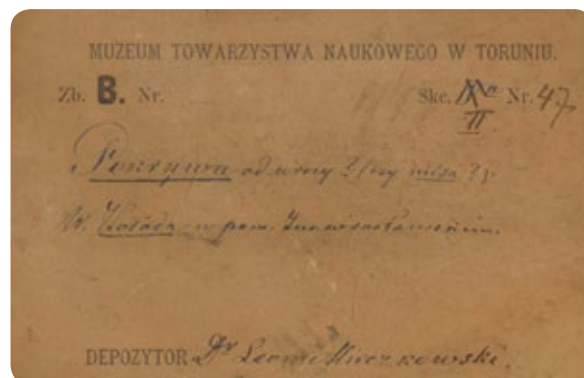 MUZEUM TOWARZYSTWA NAUKOWEGO W TORUNIU.
Zb. B. Nr. Skc. II Nr. 47
Pokrywa od urny ? (czy misa ?).
W. w pow. Inowrocławskim.
DEPOZYTOR Dr Leon Mieczkowski.